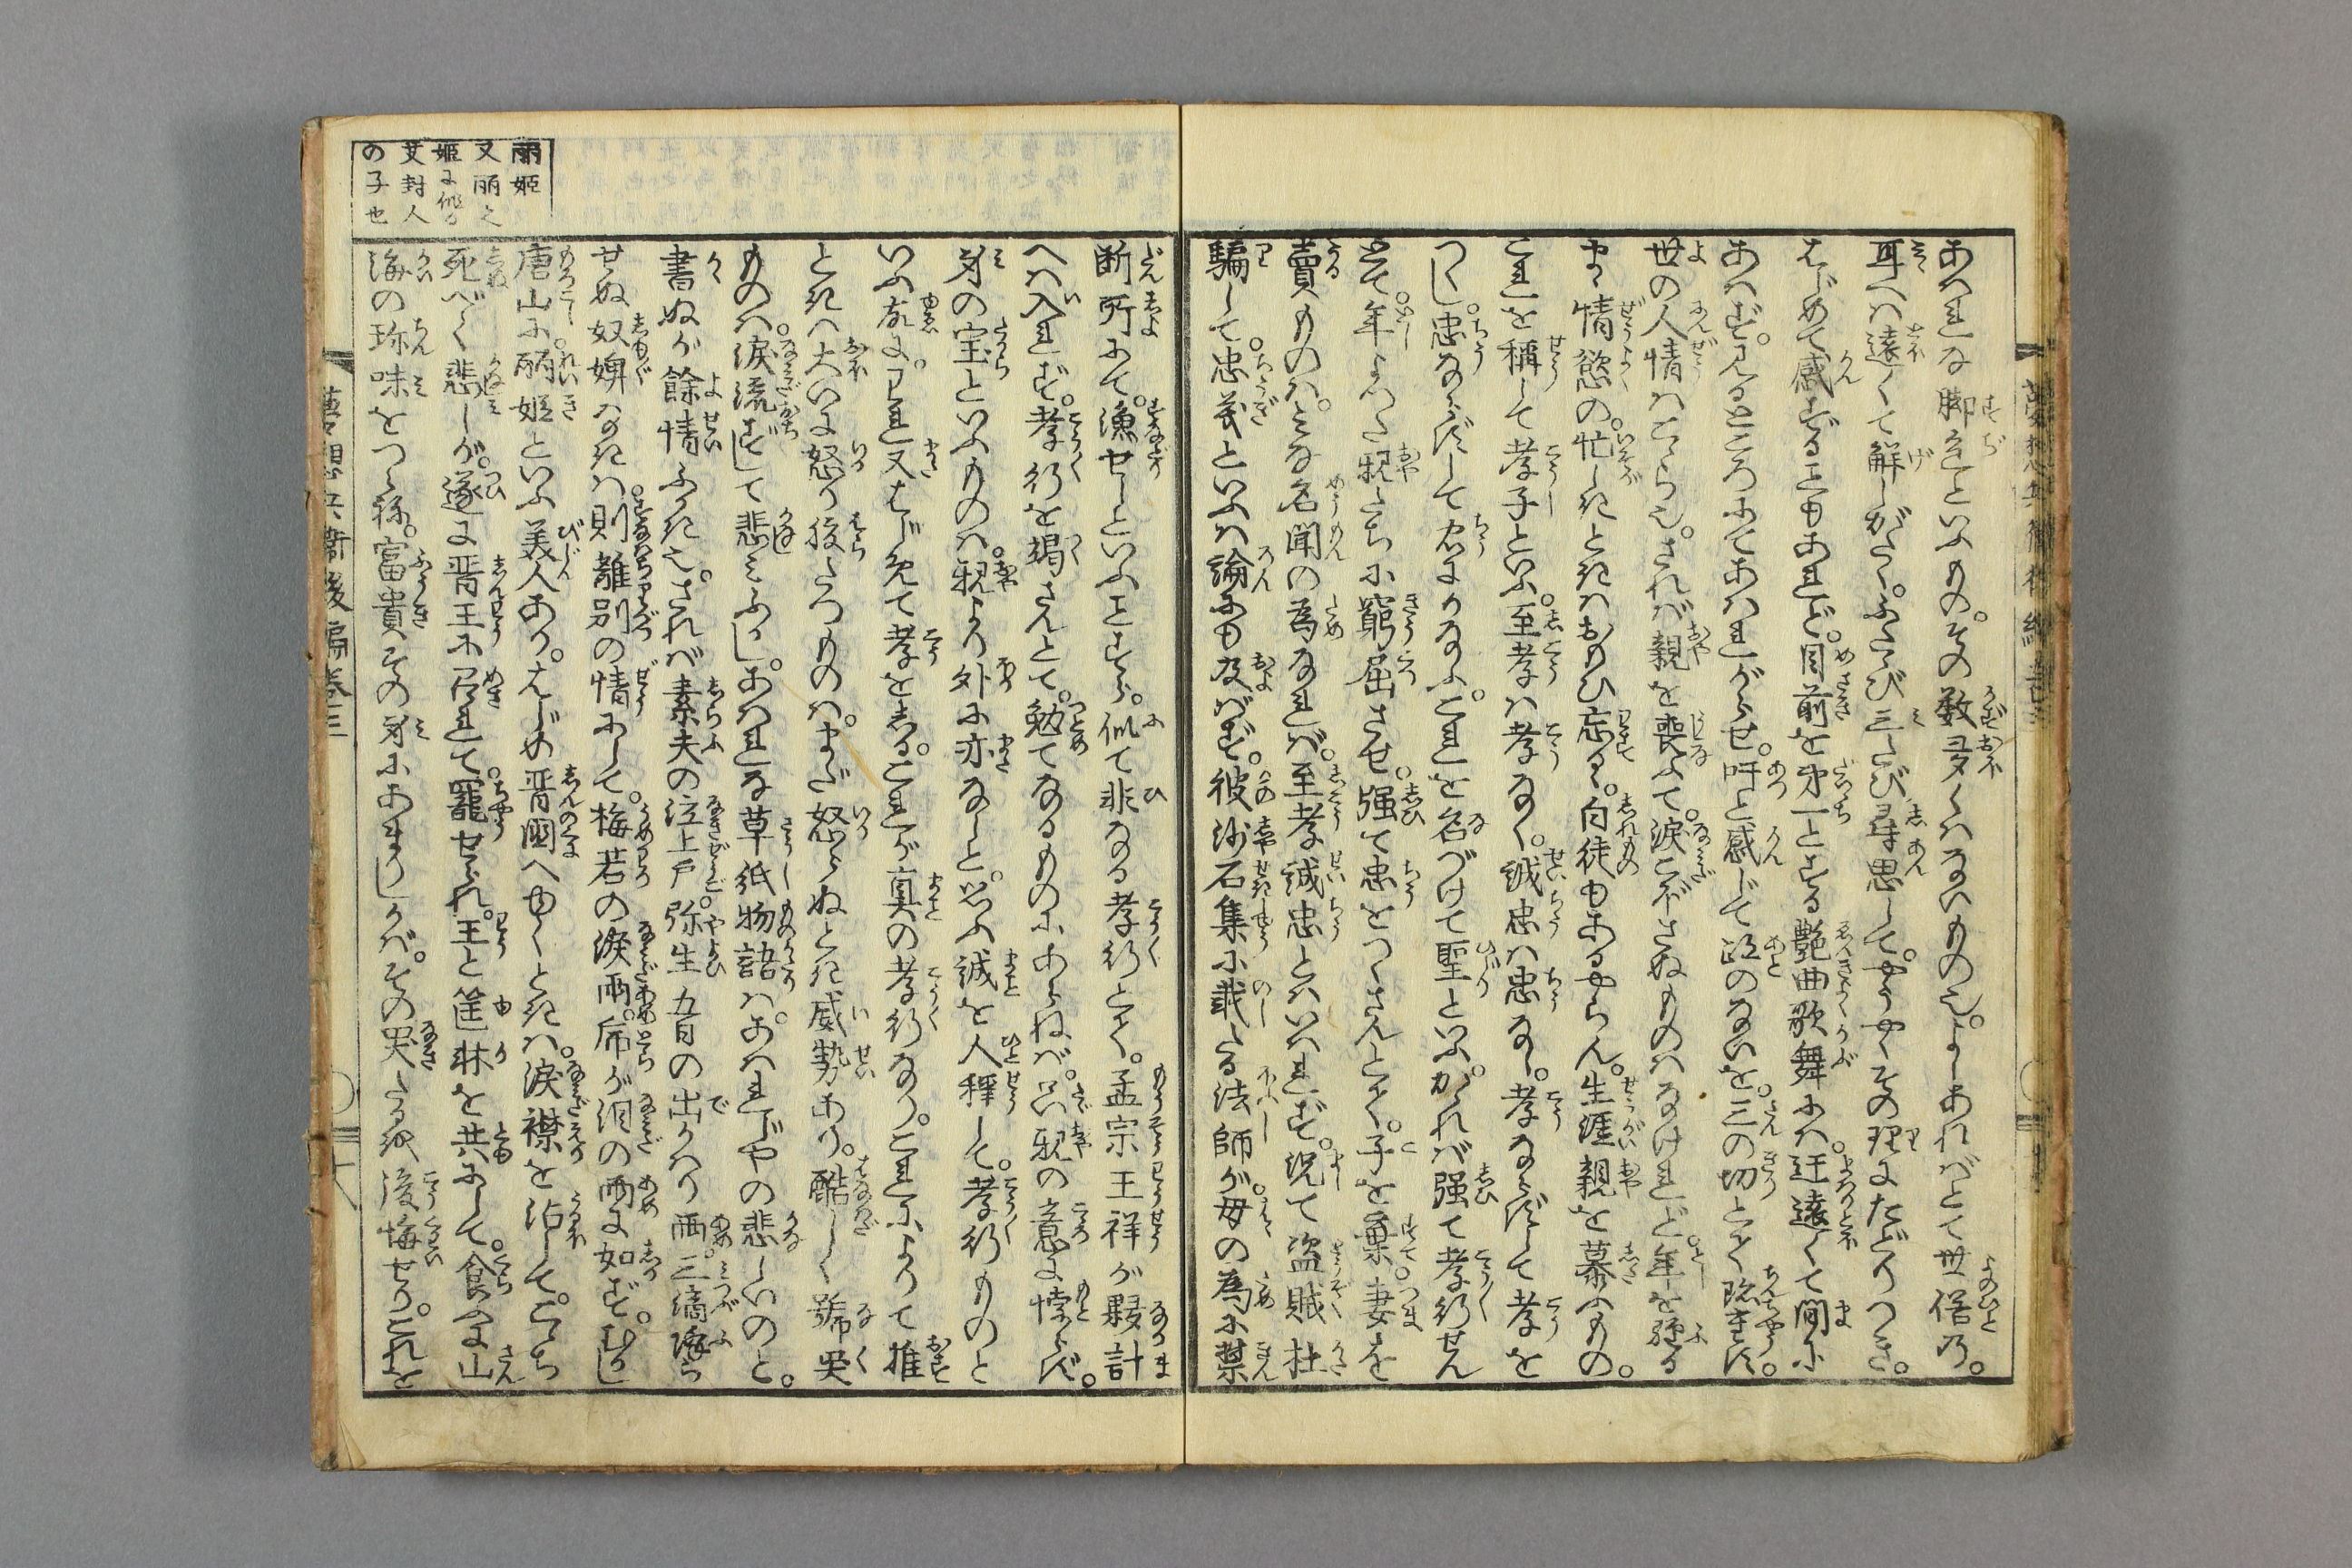 あはれな脚色といふもの。その数多くはないもの也。よしあればとて世俗の。
耳へは遠くて解しがたく。ふたゝび三たび尋思して。やうやくその理にたどりつき。
はじめて感ずる事もあれど。目前を第一とする艶曲歌舞には。迂遠くて間に
あはず。見るところにてあはれがらせ。吁と感じて跡のないを。三の切とて臨重す。
世の人情はこゝら也。されば親を喪ふて。涙こぼさぬものはなけれど。年を経る
まゝ情慾の。忙しきときはおもひ忘るゝ。白徒もあるやらん。生涯親を慕ふもの。
これを称して孝子といふ。至孝は孝なく。誠忠は忠なし。孝ならずして孝を
つくし。忠ならずして君にかなふ。これを名づけて聖といふ。かゝれば強て孝行せん
とて。年よつた親たちに窮屈させ。強て忠をつくさんとて。子を棄。妻を
賣ものは。みな名聞の為なれば。至孝誠忠とはいはれず。況て盗賊杜
騙して。忠義といふは論にも及ばず。彼沙石集に載たる法師が。母の為に禁
断所にて。漁せしといふ事すら。似て非なる孝行とて。孟宗王祥が夥計
へは入れず。孝行を竭さんとて。勉てなるものにあらねば。只親の意に悖らず。
身の宝といふものは。親より外に亦なしと。思ふ誠を人称して。孝行ものと
いふ故に。われ又はじめて孝をしる。これが真の孝行なり。これによりて推
ときは大いに怒り腹たつものは。まだ怒らぬとき威勢あり。酷しく號哭
ものは。涙流ずして悲みふかし。あはれな草紙物語は。あはれじやの悲しいのと。
書ぬが餘情ふかき也。されば素夫の泣上戸。弥生五日の出かはり雨。三滴降ら
せぬ奴婢なきは。則離別の情にして。梅若の涙雨。虎が泪の雨に如ず。むかし
唐山に。麗姫といふ美人あり。はじめ晋國へゆくときは。涙襟を沾して。こゝち
死べく悲しが。遂に晋王に召れて。寵せられ。王と筐牀を共にして。食ふに山
海の珍味をつらね。富貴その身にあまりしかば。その哭たるを後悔せり。これを
麗姫
又麗之
姫に作る
艾封人
の子也
夢想兵衛後編巻三